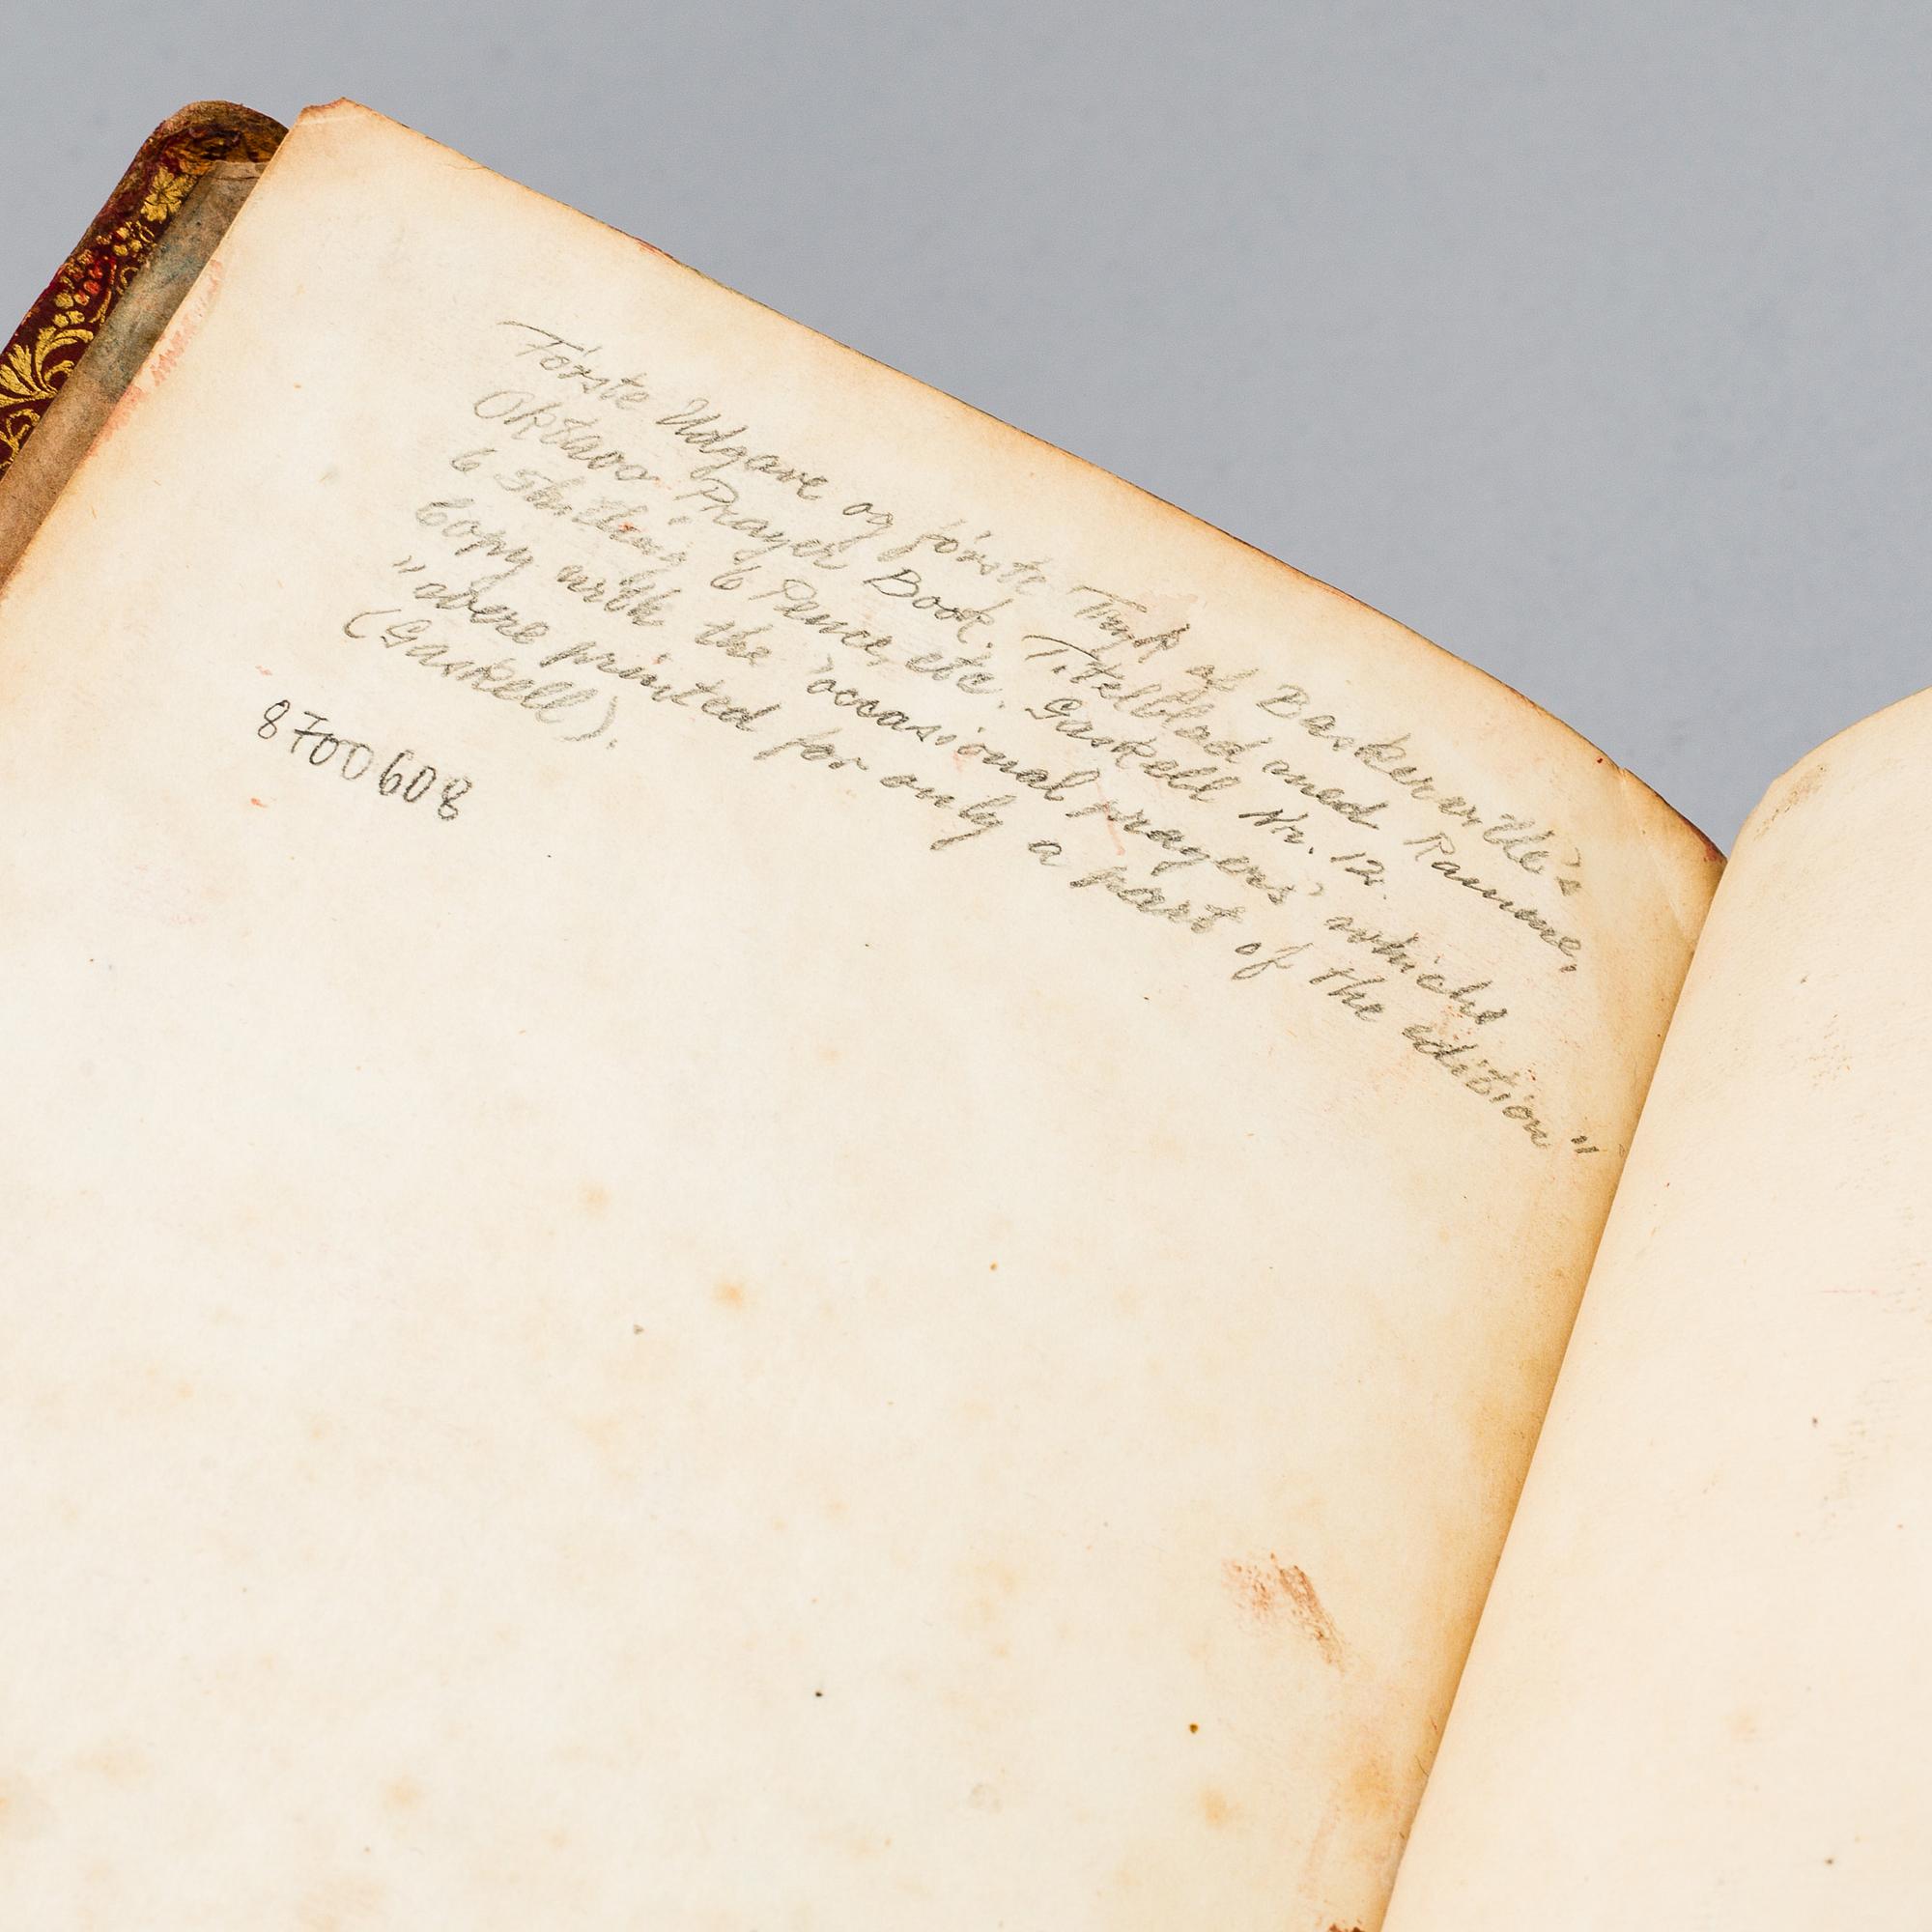 Første Udgave og første Tryk af Baskerville's
Oktavo Prayer Book. Titelblad med Ramme,
6 Shilling 6 Pence, etc. Gaskell Nr. 12.
Copy with the 'occasional prayers' which
"were printed for only a part of the edition"
(Gaskell).
8700608